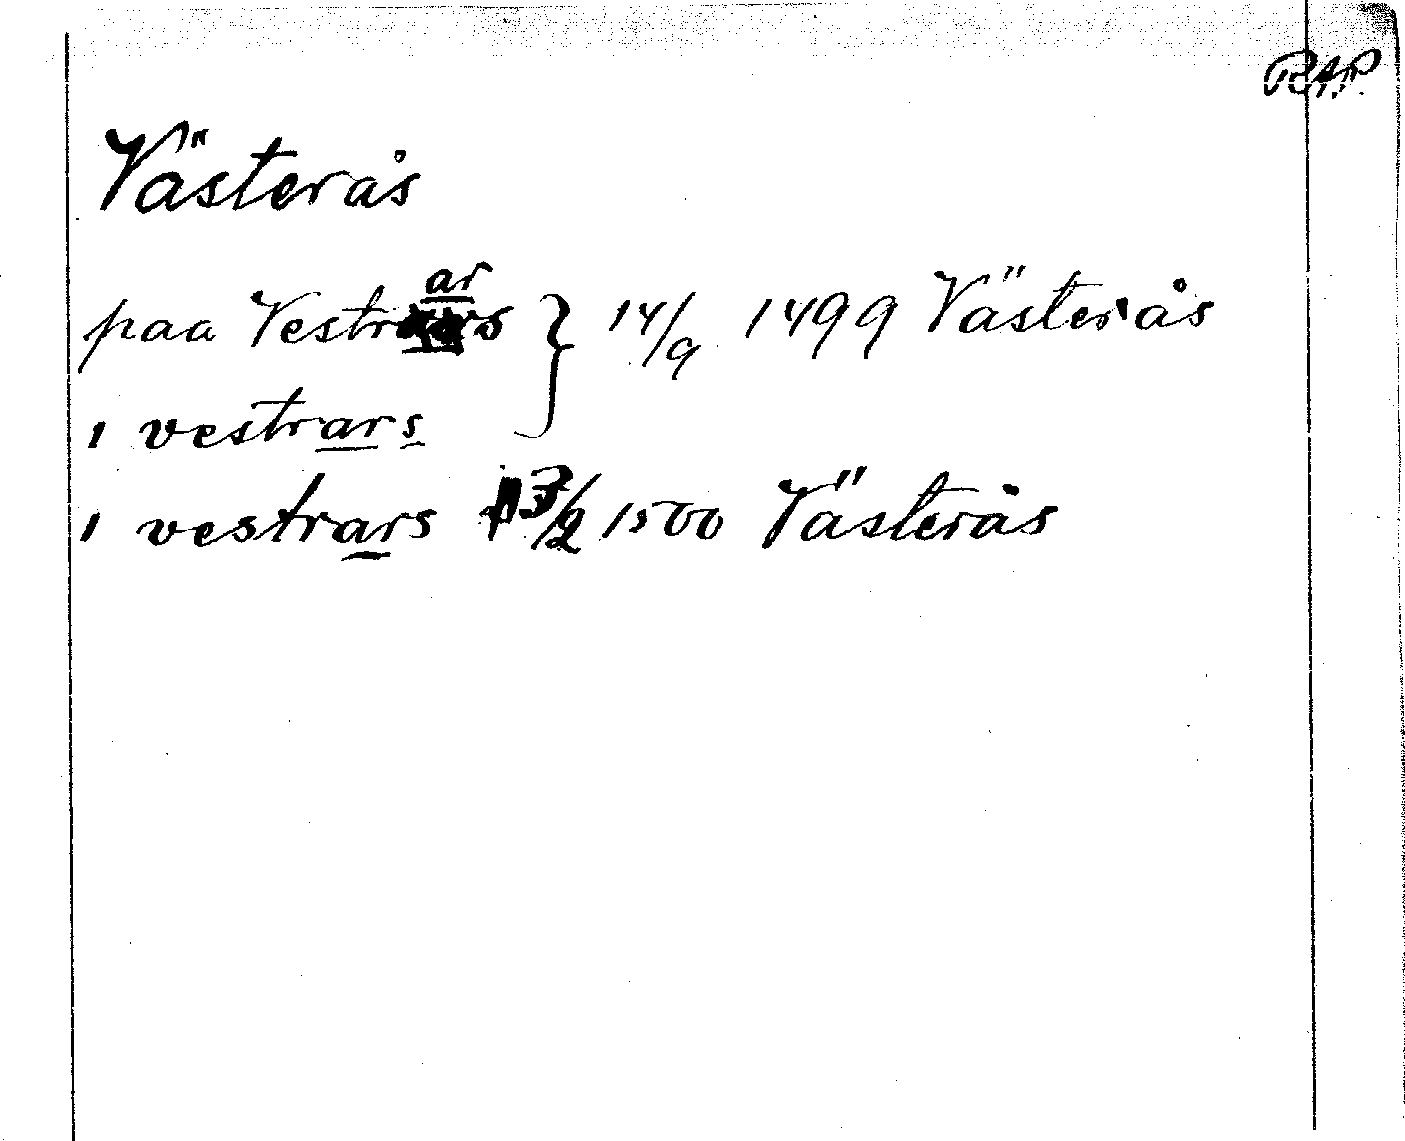 RAP.
Västerås
paa Vestrars } 14/9 1499 Västerås
ı vestrars
ı vestrars 13/2 1500 Västerås